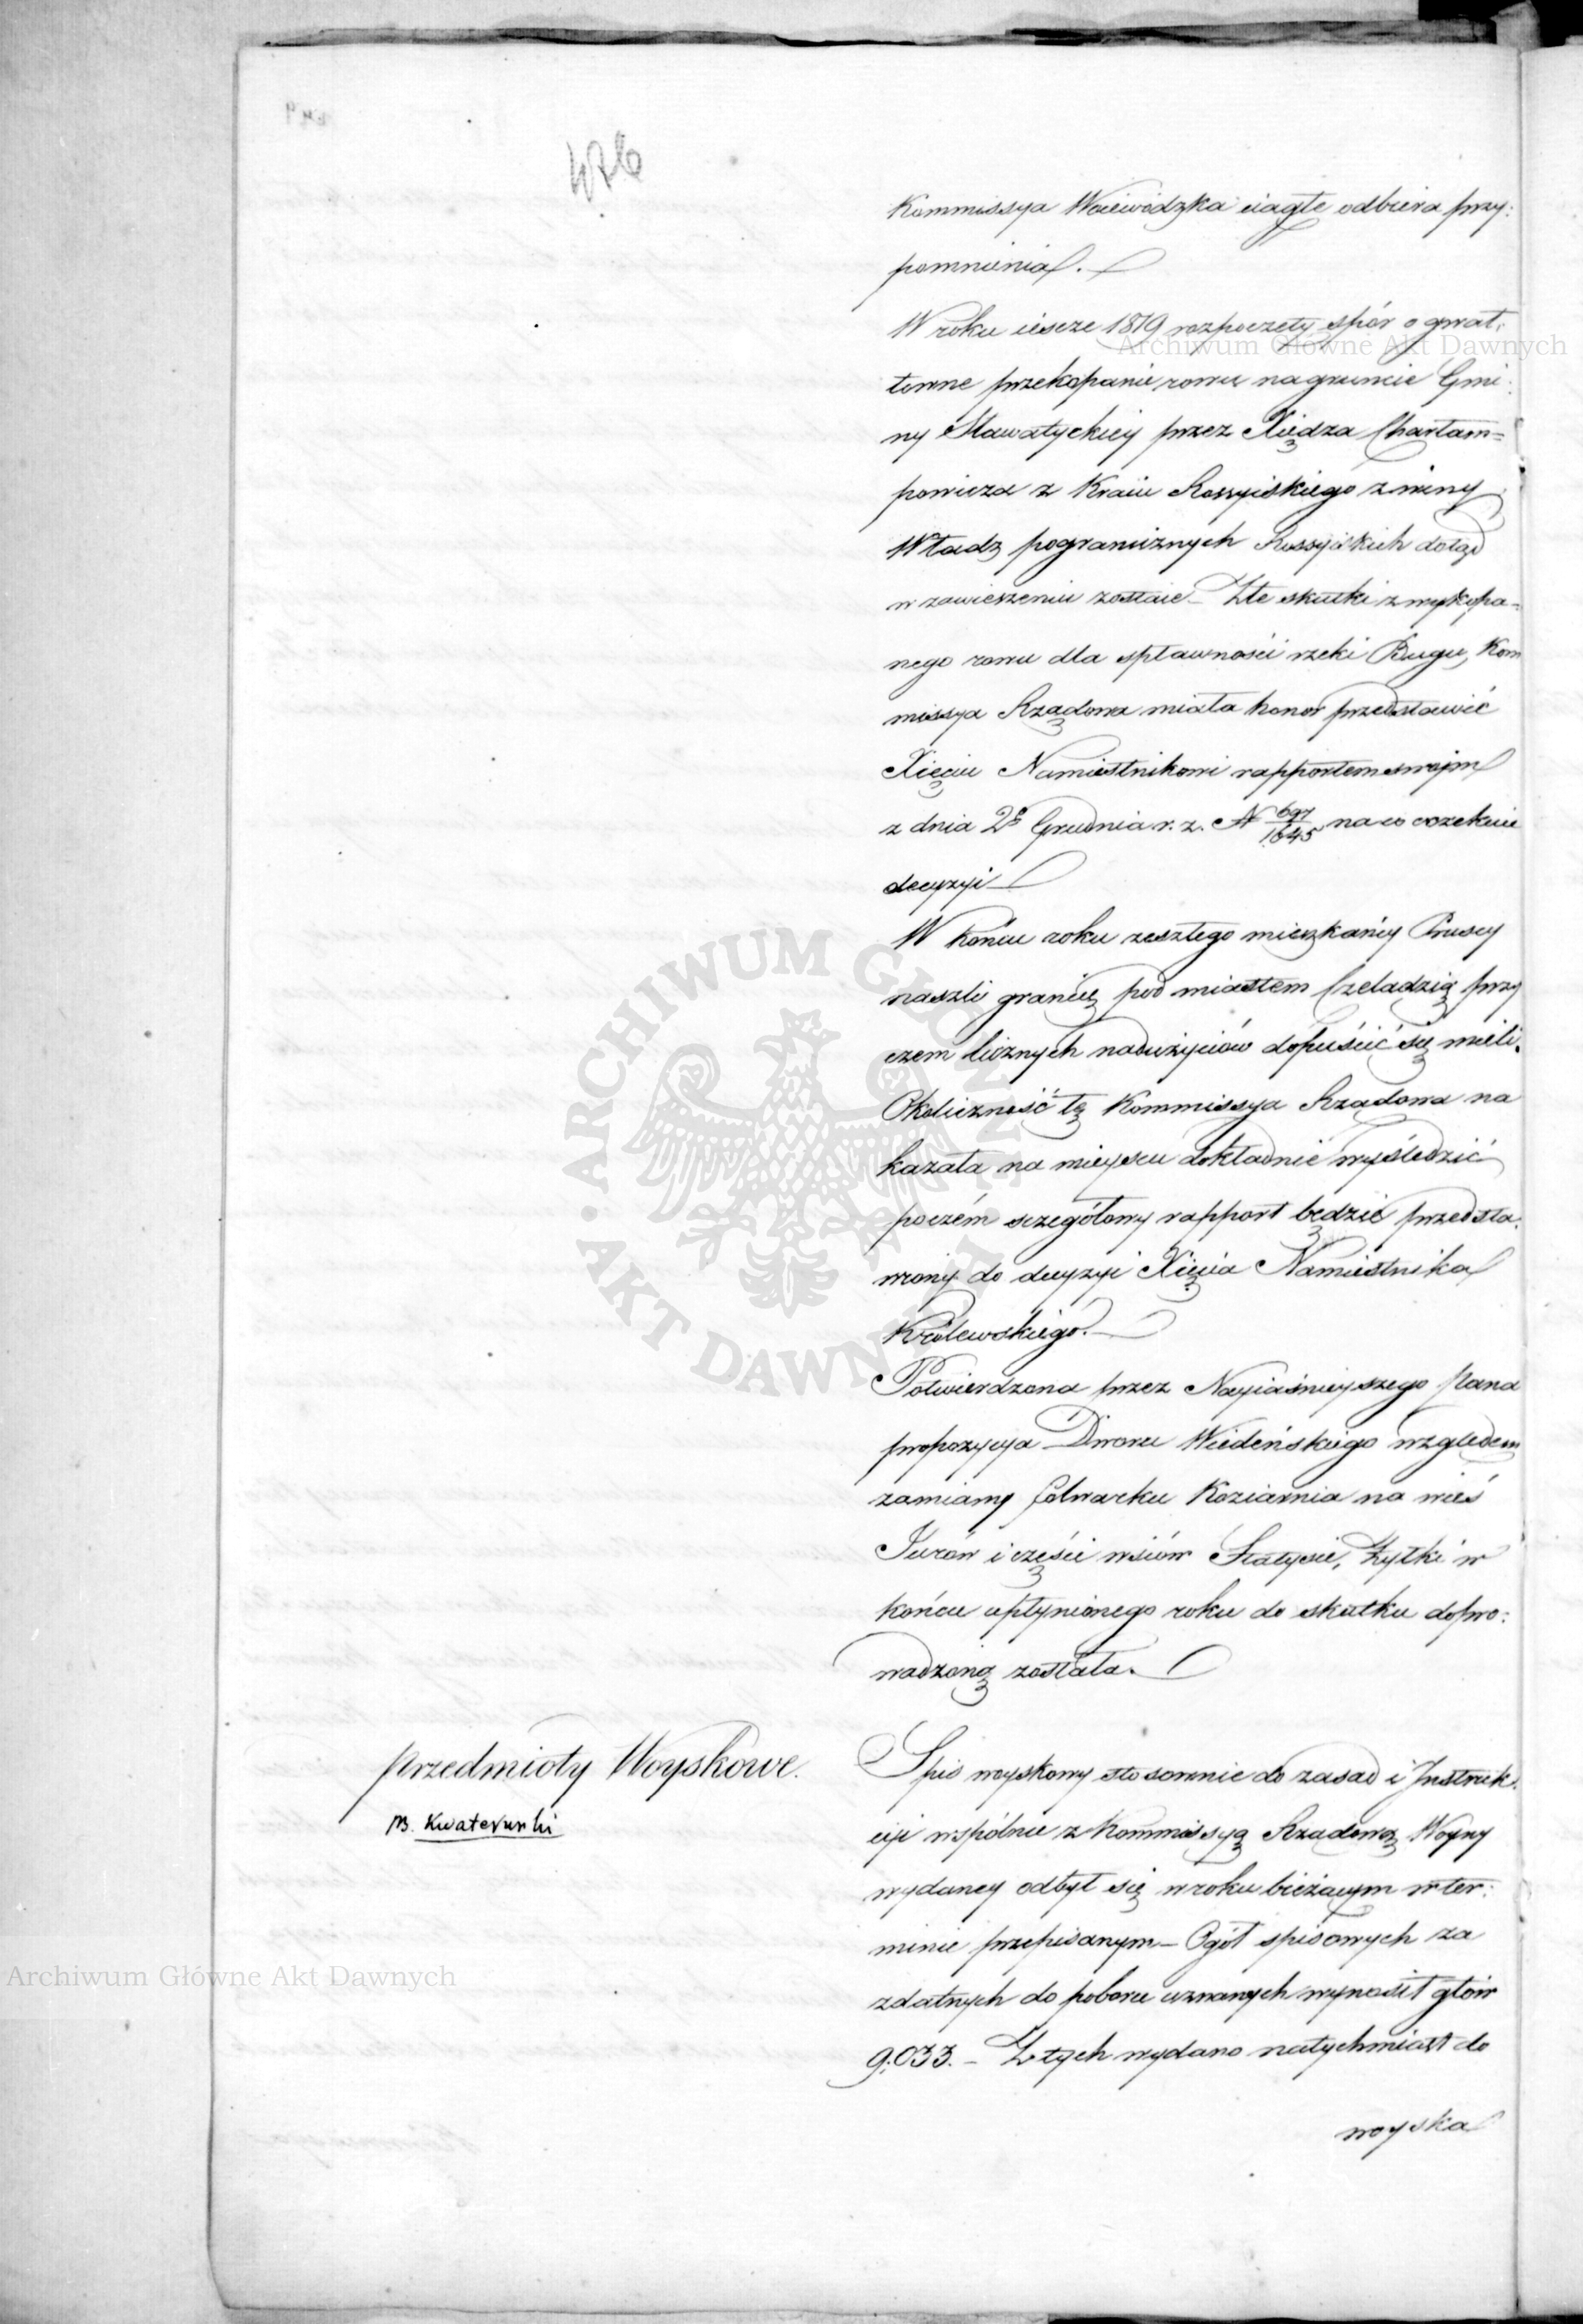 476
Kommissya Woiewódzka ciągle odbiera przy:
pomnienia.
W roku ieszcze 1819 rozpoczęty spór o gwał:
towne przekopanie rowu na gruncie Gmi:
ny Sławatyckiey przez Xiędza Charłam=
powicza z Kraiu Rossyiskiego z winy
Władz pogranicznych Rossyiskich dotąd
w zawieszeniu zostaie – Złe skutki z wykopa=
nego rowu dla spławności rzeki Bugu, Kom
missya Rządowa miała honor przedstawić
Xięciu Namiestnikowi rapportem swojm
z dnia 2º Grudnia r. z. N 697/1645 na co oczekuie
decyzyi
W końcu roku zeszłego mieszkańcy Pruscy
naszli granicę pod miastem Czeladzią przy
czem licznych nadużyciów dopuścić się mieli.
Okoliczność tę Kommissya Rządowa na
kazała na mieyscu dokładnie wyśledzić
poczém sczegółowy rapport będzie przedsta:
wiony do decyzyi Xięcia Namiestnika
Królewskiego.
Potwierdzona przez Nayiaśnieyszego Pana
propozycya Dworu Wiedeńskiego względem
zamiany folwarku Koziarnia na wieś
Jurów i części wsiów Żyłki w
końcu upłynionego roku do skutku dopro:
wadzoną została.
Przedmioty Woyskowe.
B. Kwaterunki
Spis woyskowy stosownie do zasad i Instruk:
cyi wspólnie z Kommissyą Rządową Woyny
wydaney odbył się w roku bieżącym w ter:
minie przepisanym – Ogół spisowych za
zdatnych do poboru uznanych wynosił głów
9:033. – Z tych wydano natychmiast do
woyska
Archiwum Główne Akt Dawnych
Archiwum Główne Akt Dawnych
ARCHIWUM GŁÓWNE AKT DAWNYCH